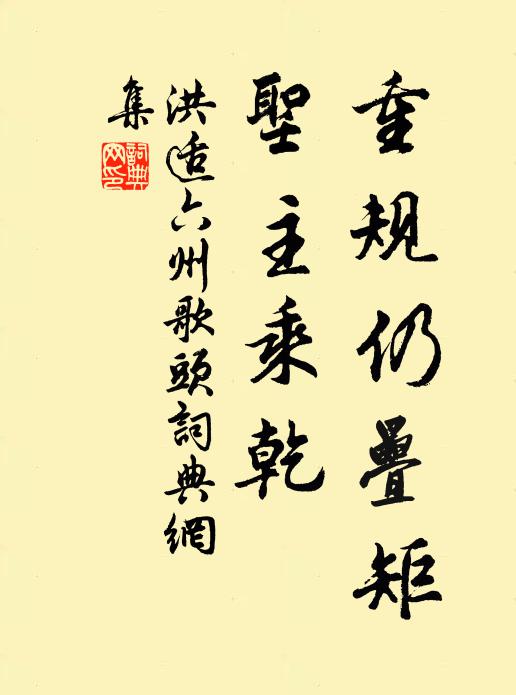 重規仍疊矩
聖主乘乾
洪适六州歌頭詞典網
集
詞典網印